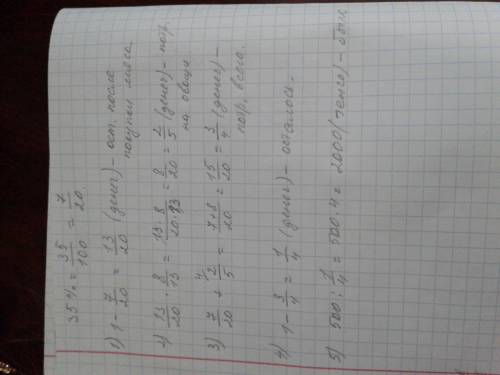 35% = 35/100 = 7/20.
1) 1 - 7/20 = 13/20 (денег) - ост. после
покупки мяса.
2) 13/20 · 8/13 = 13·8/20·13 = 8/20 = 2/5 (денег) - потр.
на овощи
3) 7/20 + 2/5 = 7+8/20 = 15/20 = 3/4 (денег) -
потр. всего.
4) 1 - 3/4 = 1/4 (денег) - осталось.
5) 500 : 1/4 = 500 · 4 = 2000 (тенге) - было